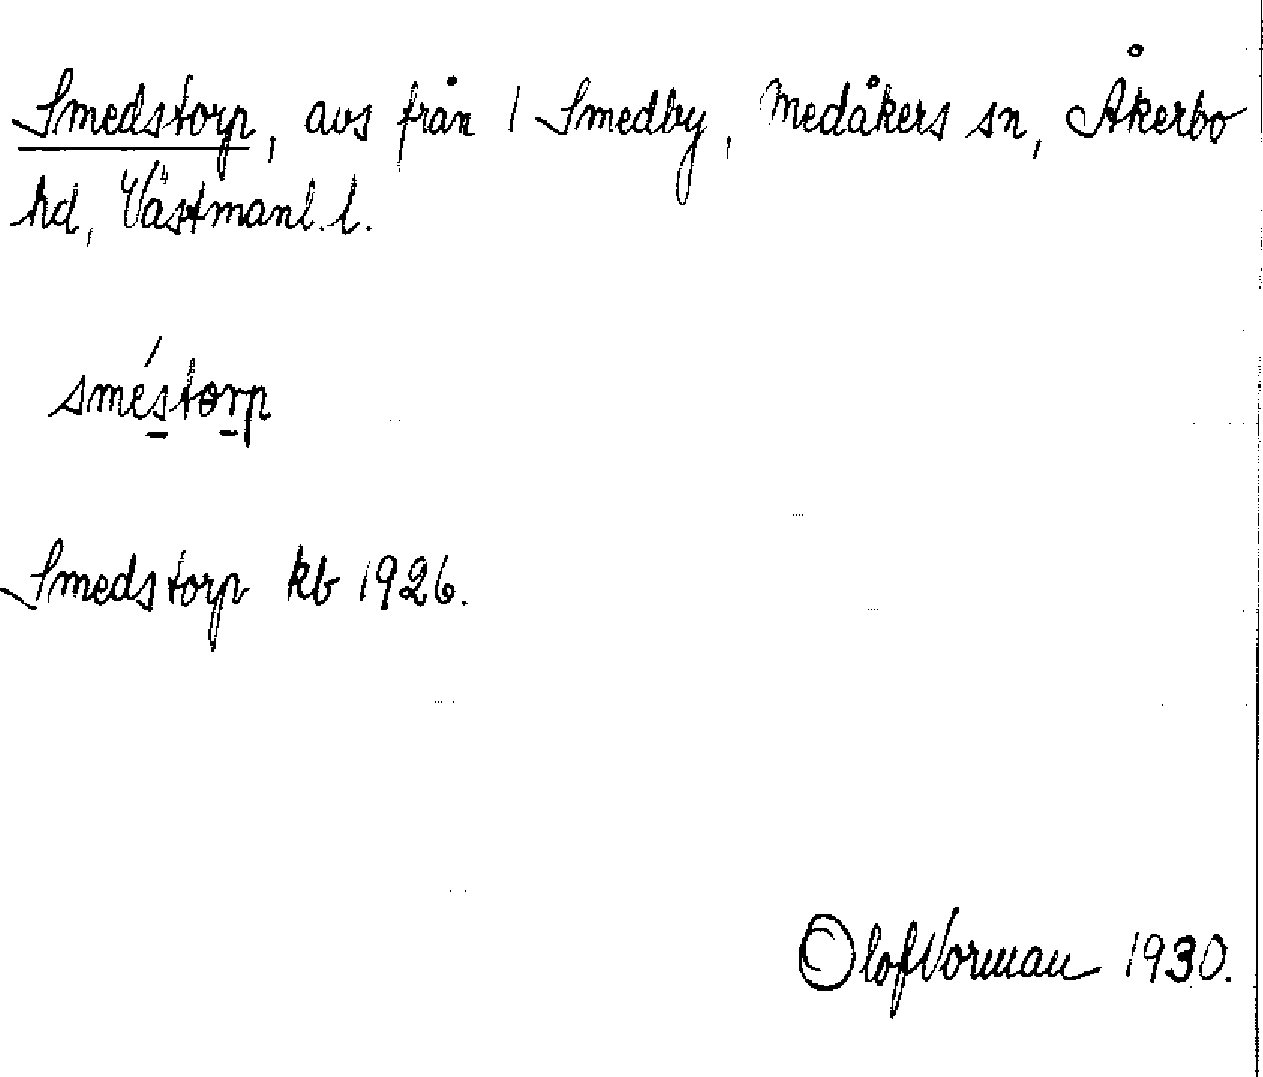 Smedstorp, avs från 1 Smedby, Medåkers sn, Åkerbo
hd, Västmanl. l.
sméstorp
Smedstorp kb 1926.
Olof Vorman 1930.